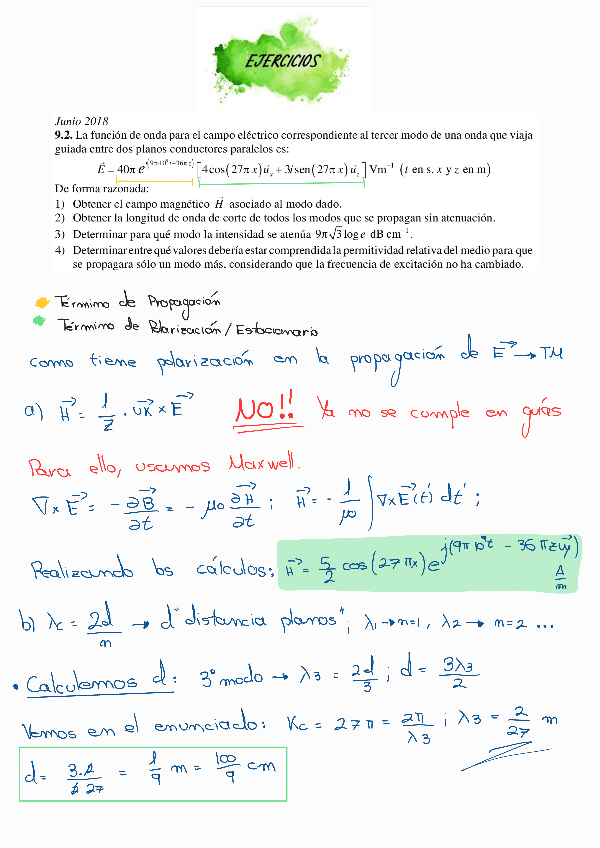 EJERCICIOS
Junio 2018
9.2. La función de onda para el campo eléctrico correspondiente al tercer modo de una onda que viaja
guiada entre dos planos conductores paralelos es:
E⃗ = 40π e^{j(9π·10⁹ t−36π z)} [4cos(27π x) u⃗ₓ + 3j sen(27π x) u⃗_z] Vm⁻¹ (t en s, x y z en m)
De forma razonada:
1) Obtener el campo magnético H⃗ asociado al modo dado.
2) Obtener la longitud de onda de corte de todos los modos que se propagan sin atenuación.
3) Determinar para qué modo la intensidad se atenúa 9π√3 log e dB cm⁻¹.
4) Determinar entre qué valores debería estar comprendida la permitividad relativa del medio para que
se propagara sólo un modo más, considerando que la frecuencia de excitación no ha cambiado.
Término de Propagación
Término de Polarización / Estacionario
como tiene polarización en la propagación de E⃗ → TM
a) H⃗ = 1/Z · uK⃗ × E⃗ NO!! Ya no se cumple en guías
Para ello, usamos Maxwell.
∇ × E⃗ = - ∂B⃗/∂t = - μ₀ ∂H⃗/∂t ; H⃗ = - 1/μ₀ ∫ ∇×E⃗(t') dt' ;
Realizando los cálculos: H⃗ = 5/2 cos(27πx) e^{j(9π10⁹t - 36πz u⃗y)} A/m
b) λc = 2d/m → d "distancia planos"; λ₁ → m=1, λ₂ → m=2 ...
• Calculemos d: 3º modo → λ₃ = 2d/3 ; d = 3λ₃/2
Vemos en el enunciado: Kc = 27π = 2π/λ₃ ; λ₃ = 2/27 m
d = 3·2/2 27 = 1/9 m = 100/9 cm